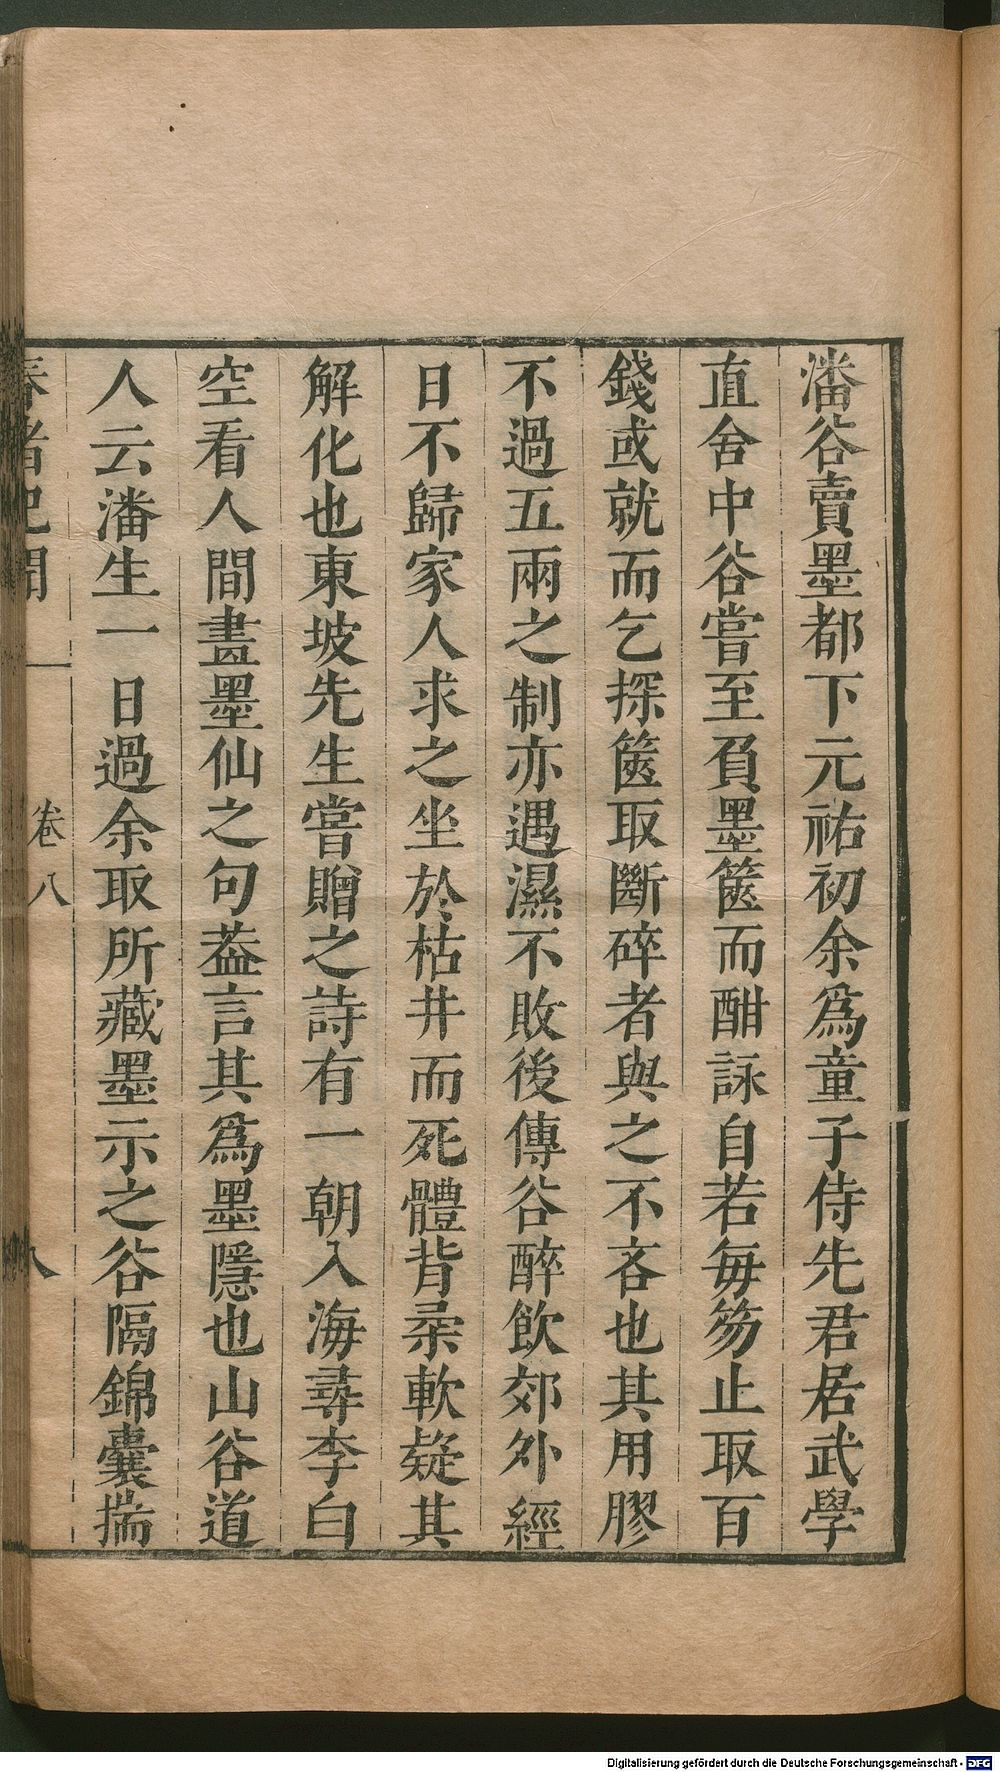 潘谷賣墨都下元祐初余爲童子侍先君居武學
直舍中谷嘗至負墨篋而酣詠自若每笏止取百
錢或就而乞探篋取斷碎者與之不吝也其用膠
不過五兩之制亦遇濕不敗後傳谷醉飲郊外經
日不歸家人求之坐於枯井而死體背柔軟疑其
解化也東坡先生嘗贈之詩有一朝入海尋李白
空看人間畫墨仙之句葢言其爲墨隱也山谷道
人云潘生一日過余取所藏墨示之谷隔錦囊揣
春渚紀聞 卷八 八
Digitalisierung gefördert durch die Deutsche Forschungsgemeinschaft - DFG